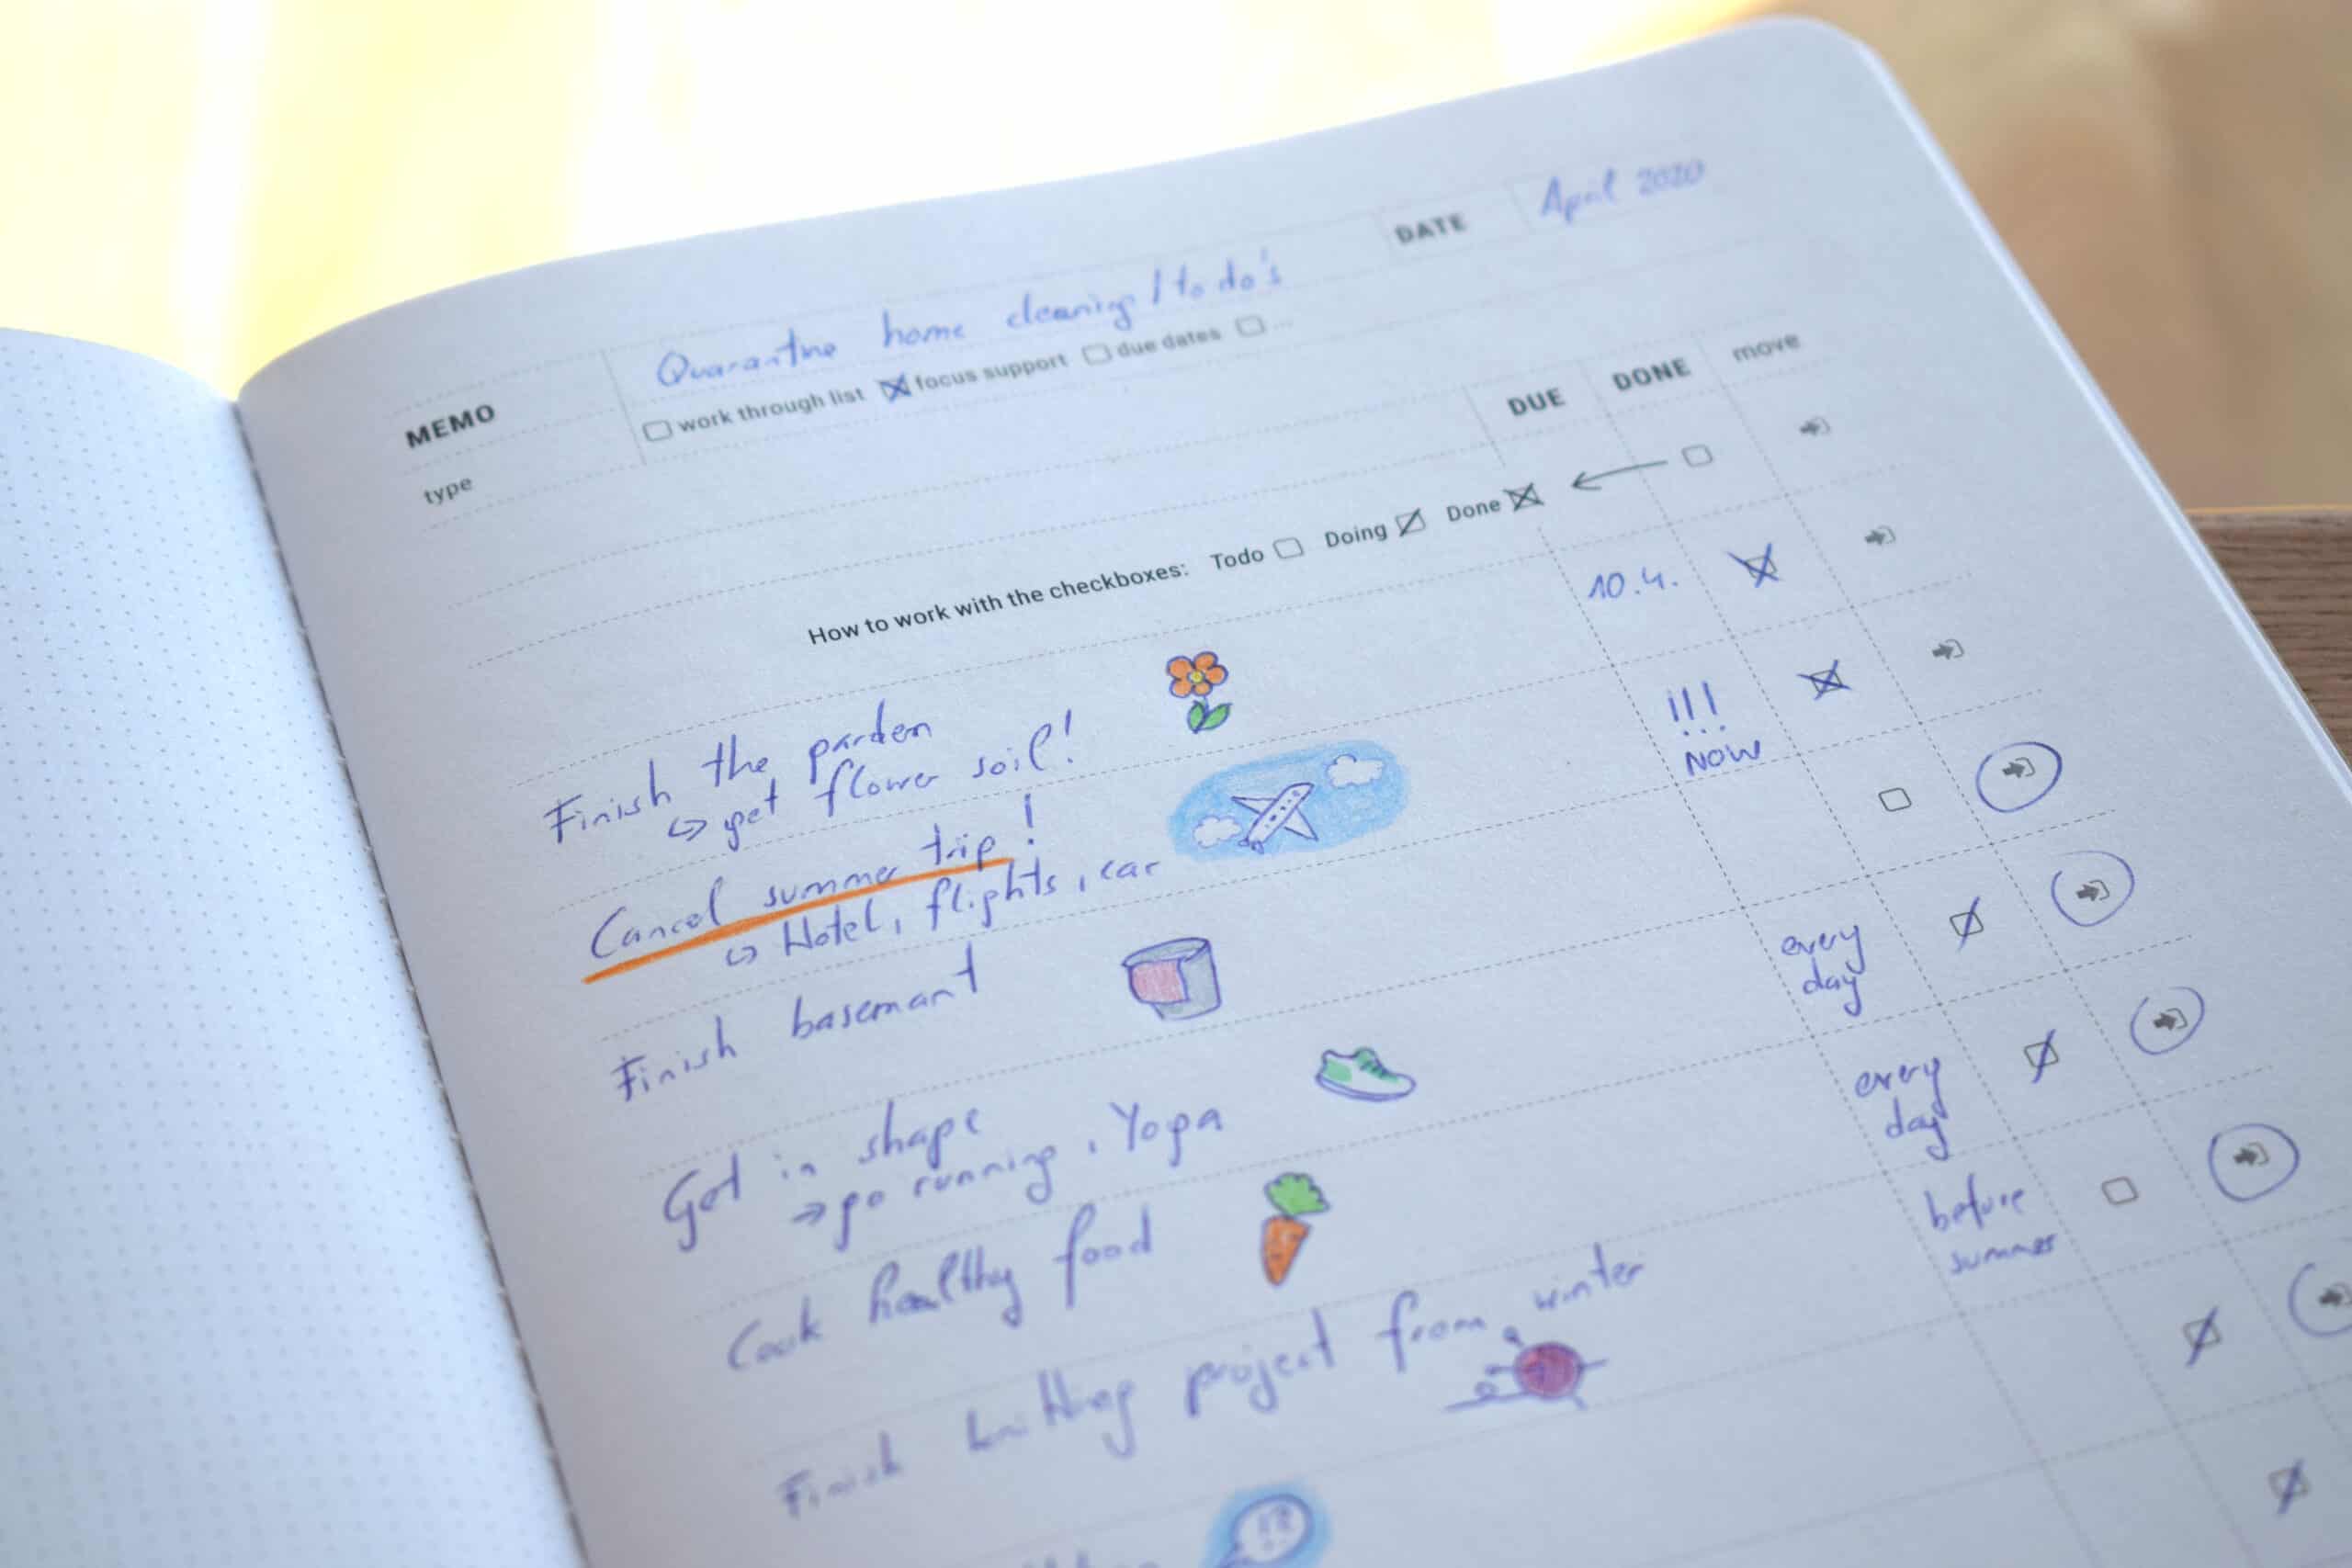 April 2020
DATE
Quarantine home cleaning / to do's
MEMO
work through list focus support due dates ...
type
DUE DONE move
How to work with the checkboxes: Todo Doing Done
10.4.
Finish the garden
↳ get flower soil!
!!!
NOW
Cancel summer trip!
↳ Hotel, flights, car
Finish basemant
every
day
Get in shape
→ go running, Yoga
every
day
Cook healthy food
before
summer
Finish knitting project from winter